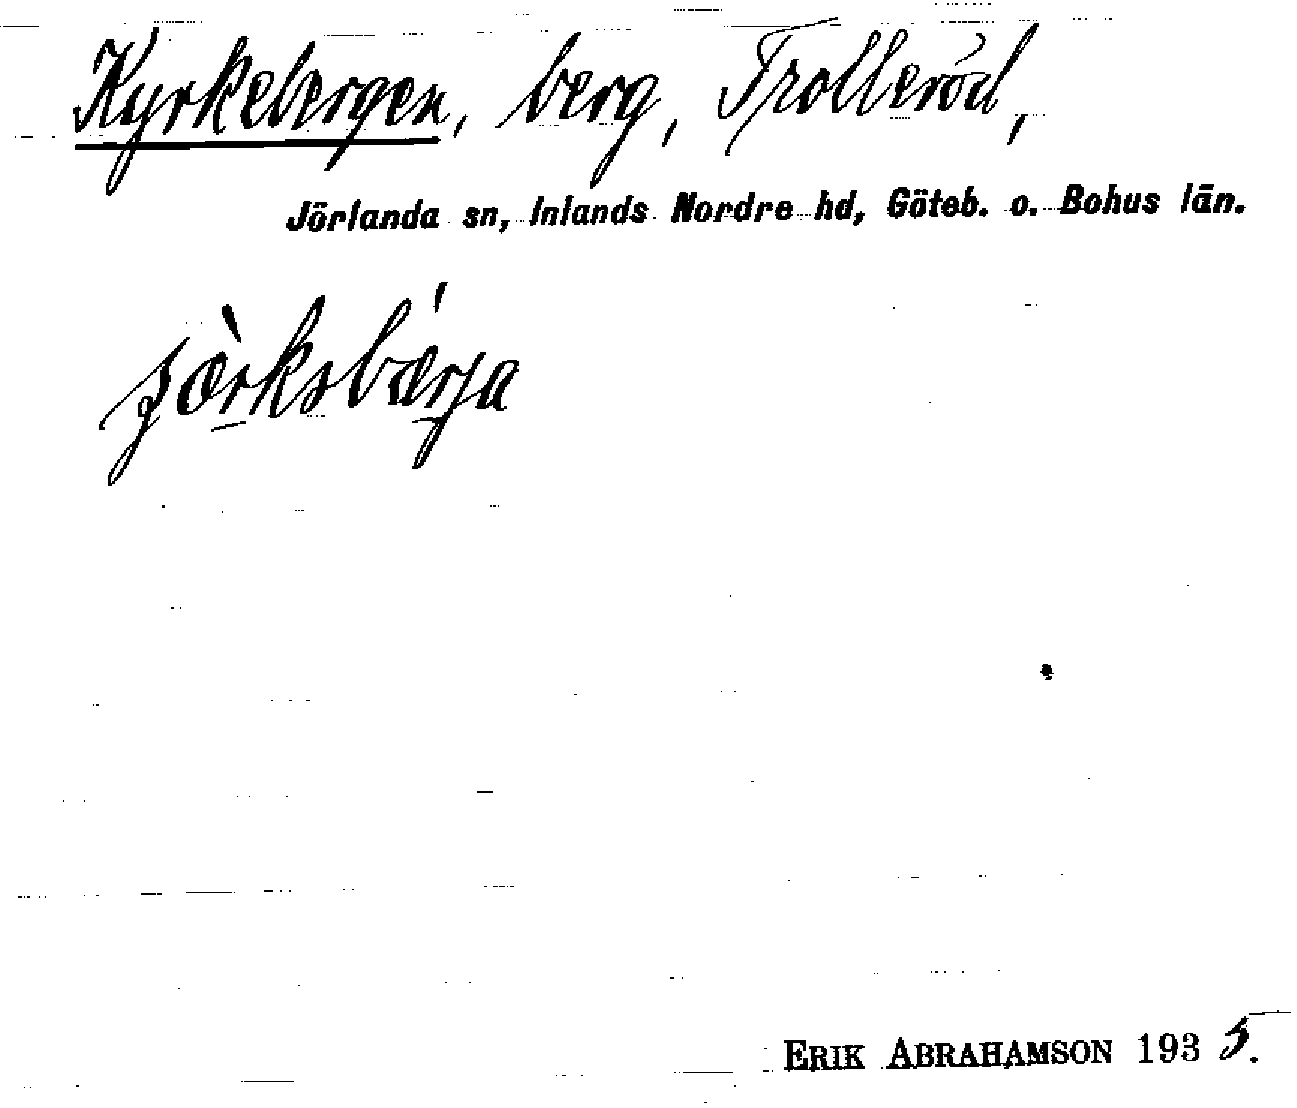 Kyrkebergen, berg, Trolleröd,
Jörlanda sn, Inlands Nordre hd, Göteb. o. Bohus län.
ERIK ABRAHAMSON 1935.